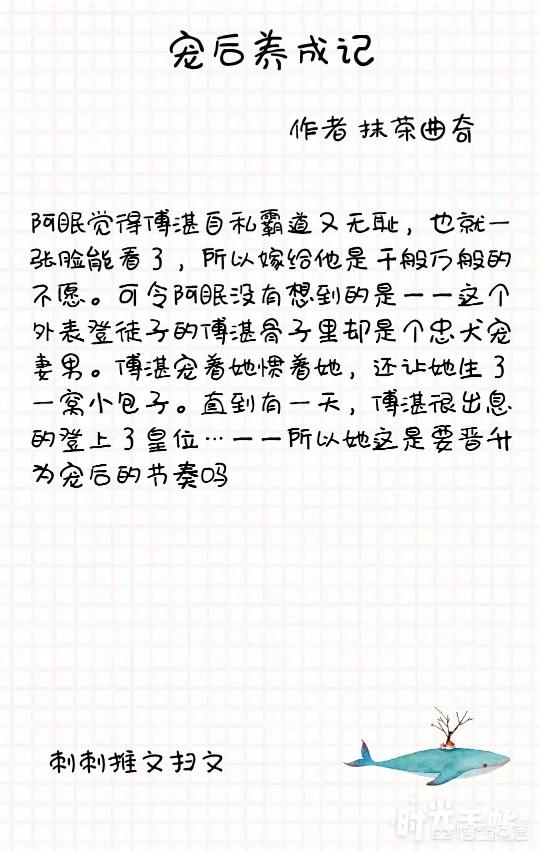 宠后养成记
作者 抹茶曲奇
阿眠觉得傅湛自私霸道又无耻，也就一
张脸能看了，所以嫁给他是千般万般的
不愿。可令阿眠没有想到的是一一这个
外表登徒子的傅湛骨子里却是个忠犬宠
妻男。傅湛宠着她惯着她，还让她生了
一窝小包子。直到有一天，傅湛很出息
的登上了皇位…一一所以她这是要晋升
为宠后的节奏吗
刺刺推文扫文
时光手帐
悟空问答